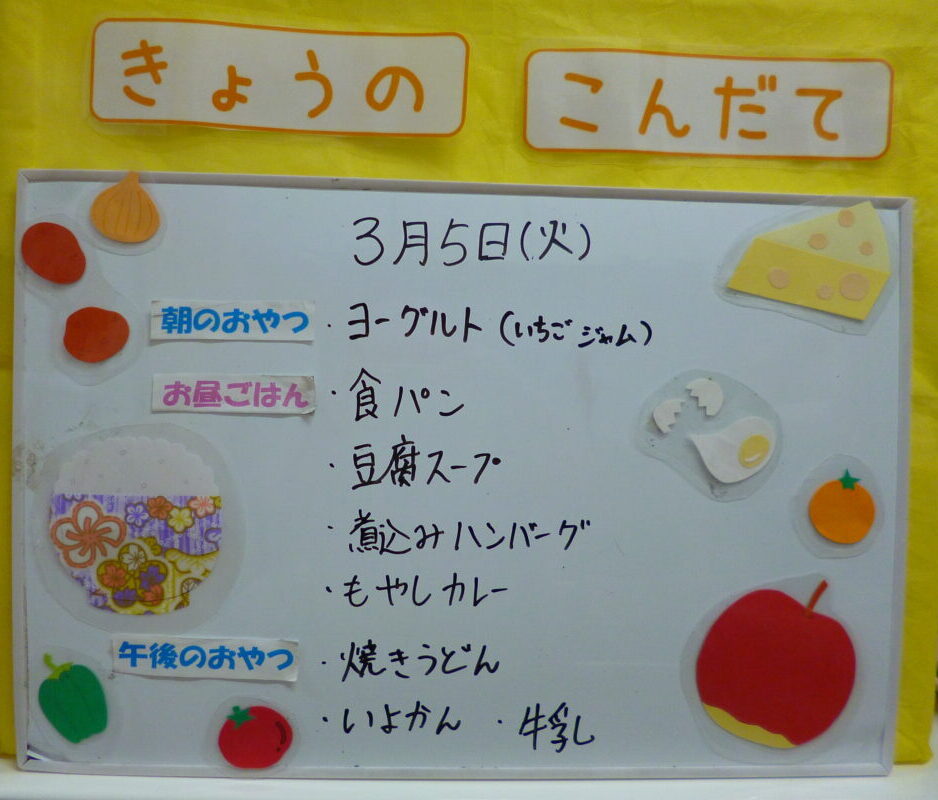 きょうの こんだて
3月5日(火)
朝のおやつ ・ヨーグルト (いちごジャム)
お昼ごはん ・食パン
・豆腐スープ
・煮込みハンバーグ
・もやしカレー
午後のおやつ ・焼きうどん
・いよかん ・牛乳